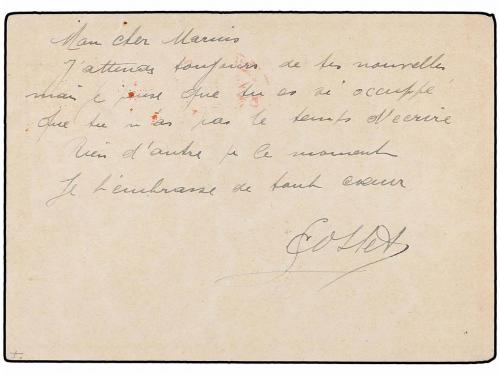 Mon cher Marius
J'attends toujours de tes nouvelles
mais je pense que tu es si occuppé
que tu n'as pas le temps d'écrire
Rien d'autre pr ce moment
Je t'embrasse de tout cœur